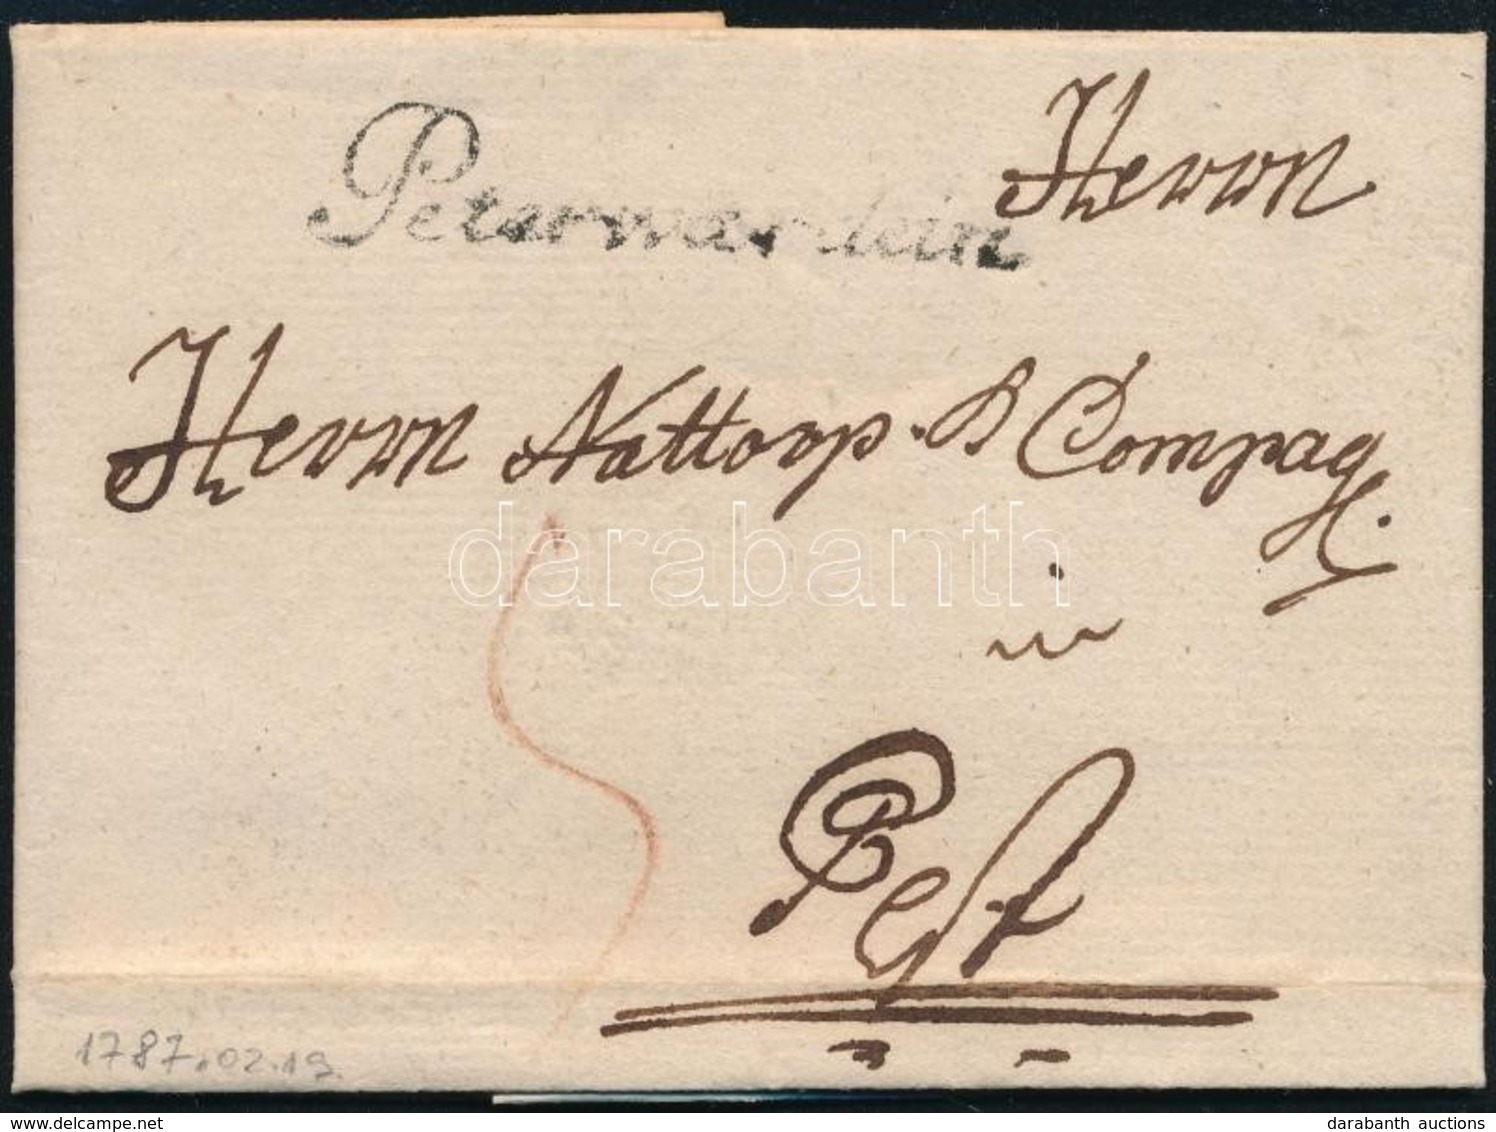 Peterwardein
Herrn
Herrn Nattorp & Compag
in
Pest
1787.02.19.
darabanth
delcampe.net
darabanth auctions